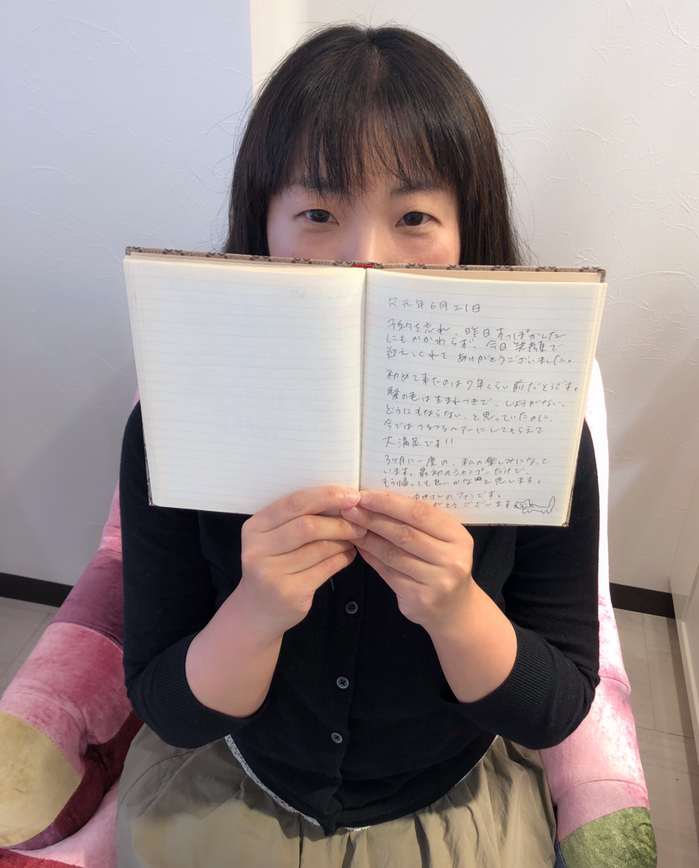 R元年6月21日
予約を忘れ、昨日すっぽかした
にもかかわらず、今日笑顔で
迎えてくれて ありがとうございました。
初めて来たのは7年くらい前だそうです。
髪の毛は生まれつきで、しょうがない、
どうにもならない、と思っていたのに、
今ではつるつるヘアーにしてもらえて
大満足です!!
3ヶ月に一度の、私の楽しみになって
います。最初のシャンプーだけで、
もう帰っても良いかな
と思います。
さんのファンです。
がとうございます